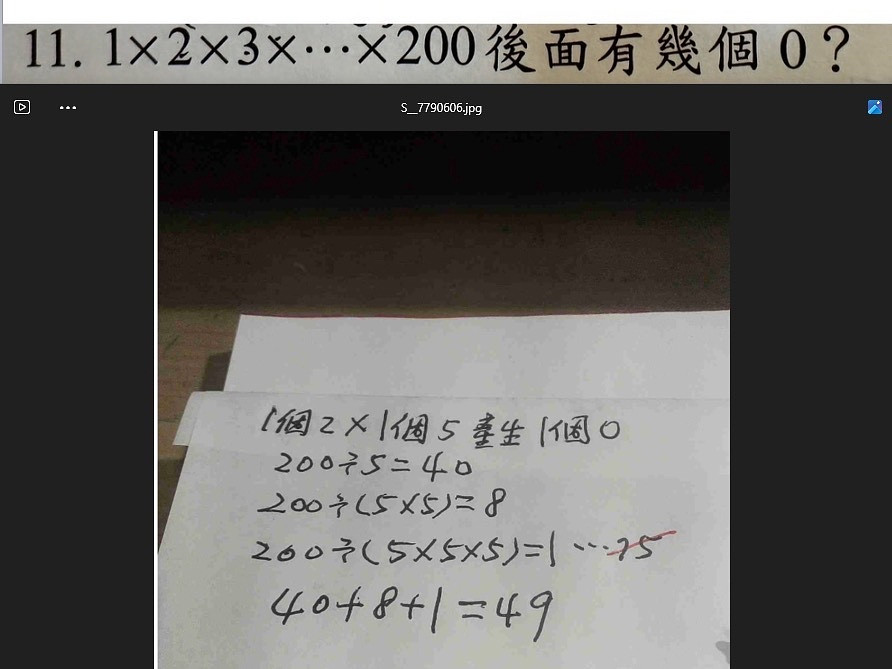 11. 1×2×3×⋯×200後面有幾個0？
S__7790606.jpg
1個2×1個5產生1個0
200÷5=40
200÷(5×5)=8
200÷(5×5×5)=1…75
40+8+1=49